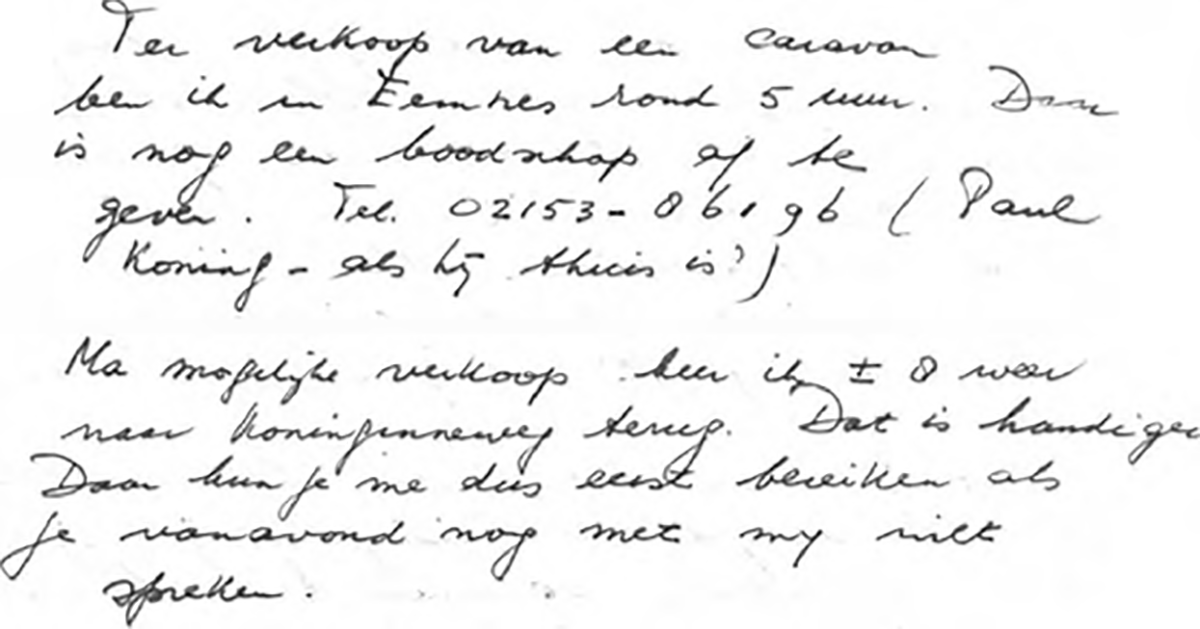 Ter verkoop van een caravan
ben ik in Eemnes rond 5 uur. Daar
is nog een boodschap af te
geven. Tel. 02153-86196 (Paul
Koning - als hij thuis is?)
Na mogelijke verkoop keer ik ± 8 weer
naar Koninginneweg terug. Dat is handiger
Daar kun je me dus eerst bereiken als
je vanavond nog met mij wilt
spreken.